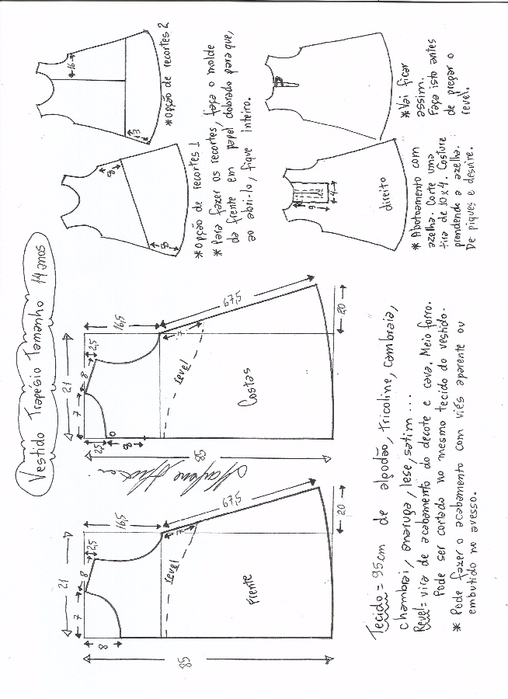 Vestido Trapésio Tamanho 14 anos
21
7
8
2,5
16,5
8
revel
7
67,5
85
20
frente
21
7
8
2,5
16,5
2,5
8
revel
7
67,5
85
20
Costas
8
*opção de recortes 1
16
13
*opção de recortes 2
* Para fazer os recortes, faça o molde
da frente em papel dobrado para que,
ao abri-lo, fique inteiro.
direito
4
* Abotoamento com
azelha. Corte uma
tira de 10x4. Costure
prendendo a azelha.
De piques e desvire.
*Vai ficar
assim.
Faça isto antes
de pregar o
revel.
Tecido = 95cm de algodão, tricoline, cambraia,
chambrai, anaruga, lese, satim ...
Revel= vira de acabamento do decote e cava. Meio forro.
Pode ser cortado no mesmo tecido do vestido.
* Pode fazer o acabamento com viés aparente ou
embutido no avesso.